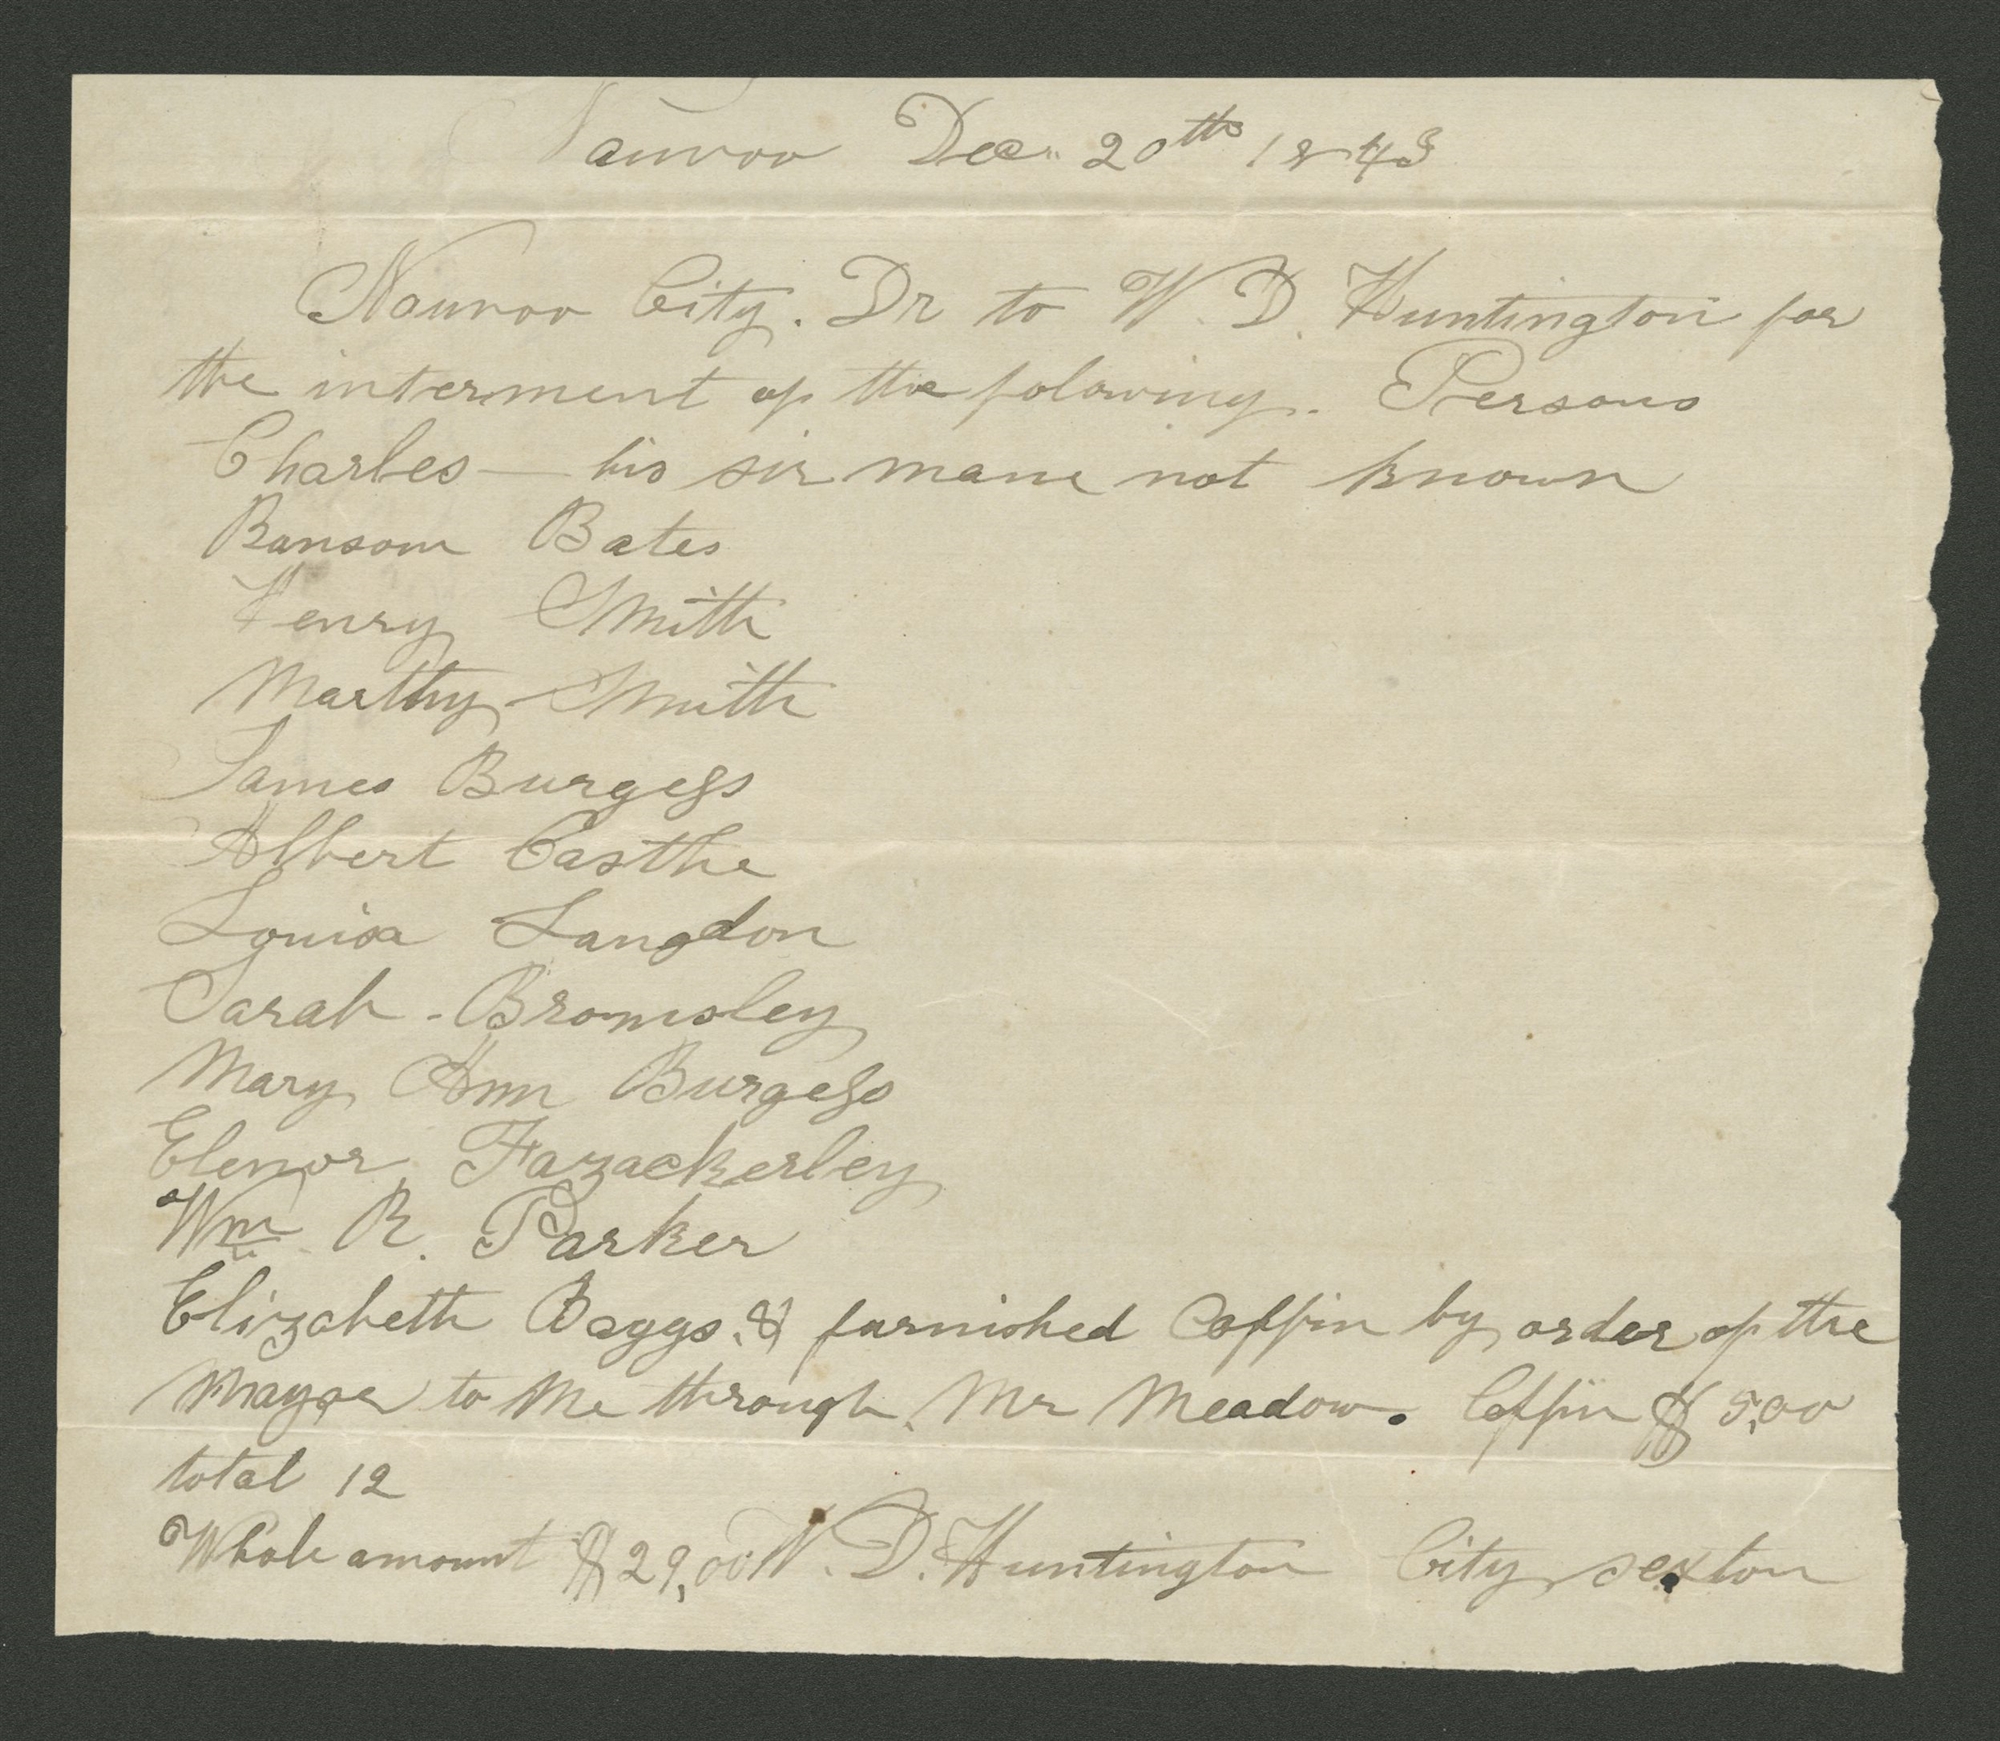 Nauvoo Dec. 20th 1843
Nauvoo City. Dr to W. D. Huntington for
the interment of the folowing. Persons
Charles — his sir mane not known
Ransom Bates
Henry Smith
Marthy Smith
James Burgess
Albert Easthe
Louisa Langdon
Sarah - Bromsley
Mary Ann Burgess
Elenor Fazackerley
Wm R. Parker
Elizabeth Baggs. & furnished Coffin by order of the
Mayor to Me through Mr Meadow. Coffin $5,00
total 12
Whole amount $29,00 W. D. Huntington City sexton